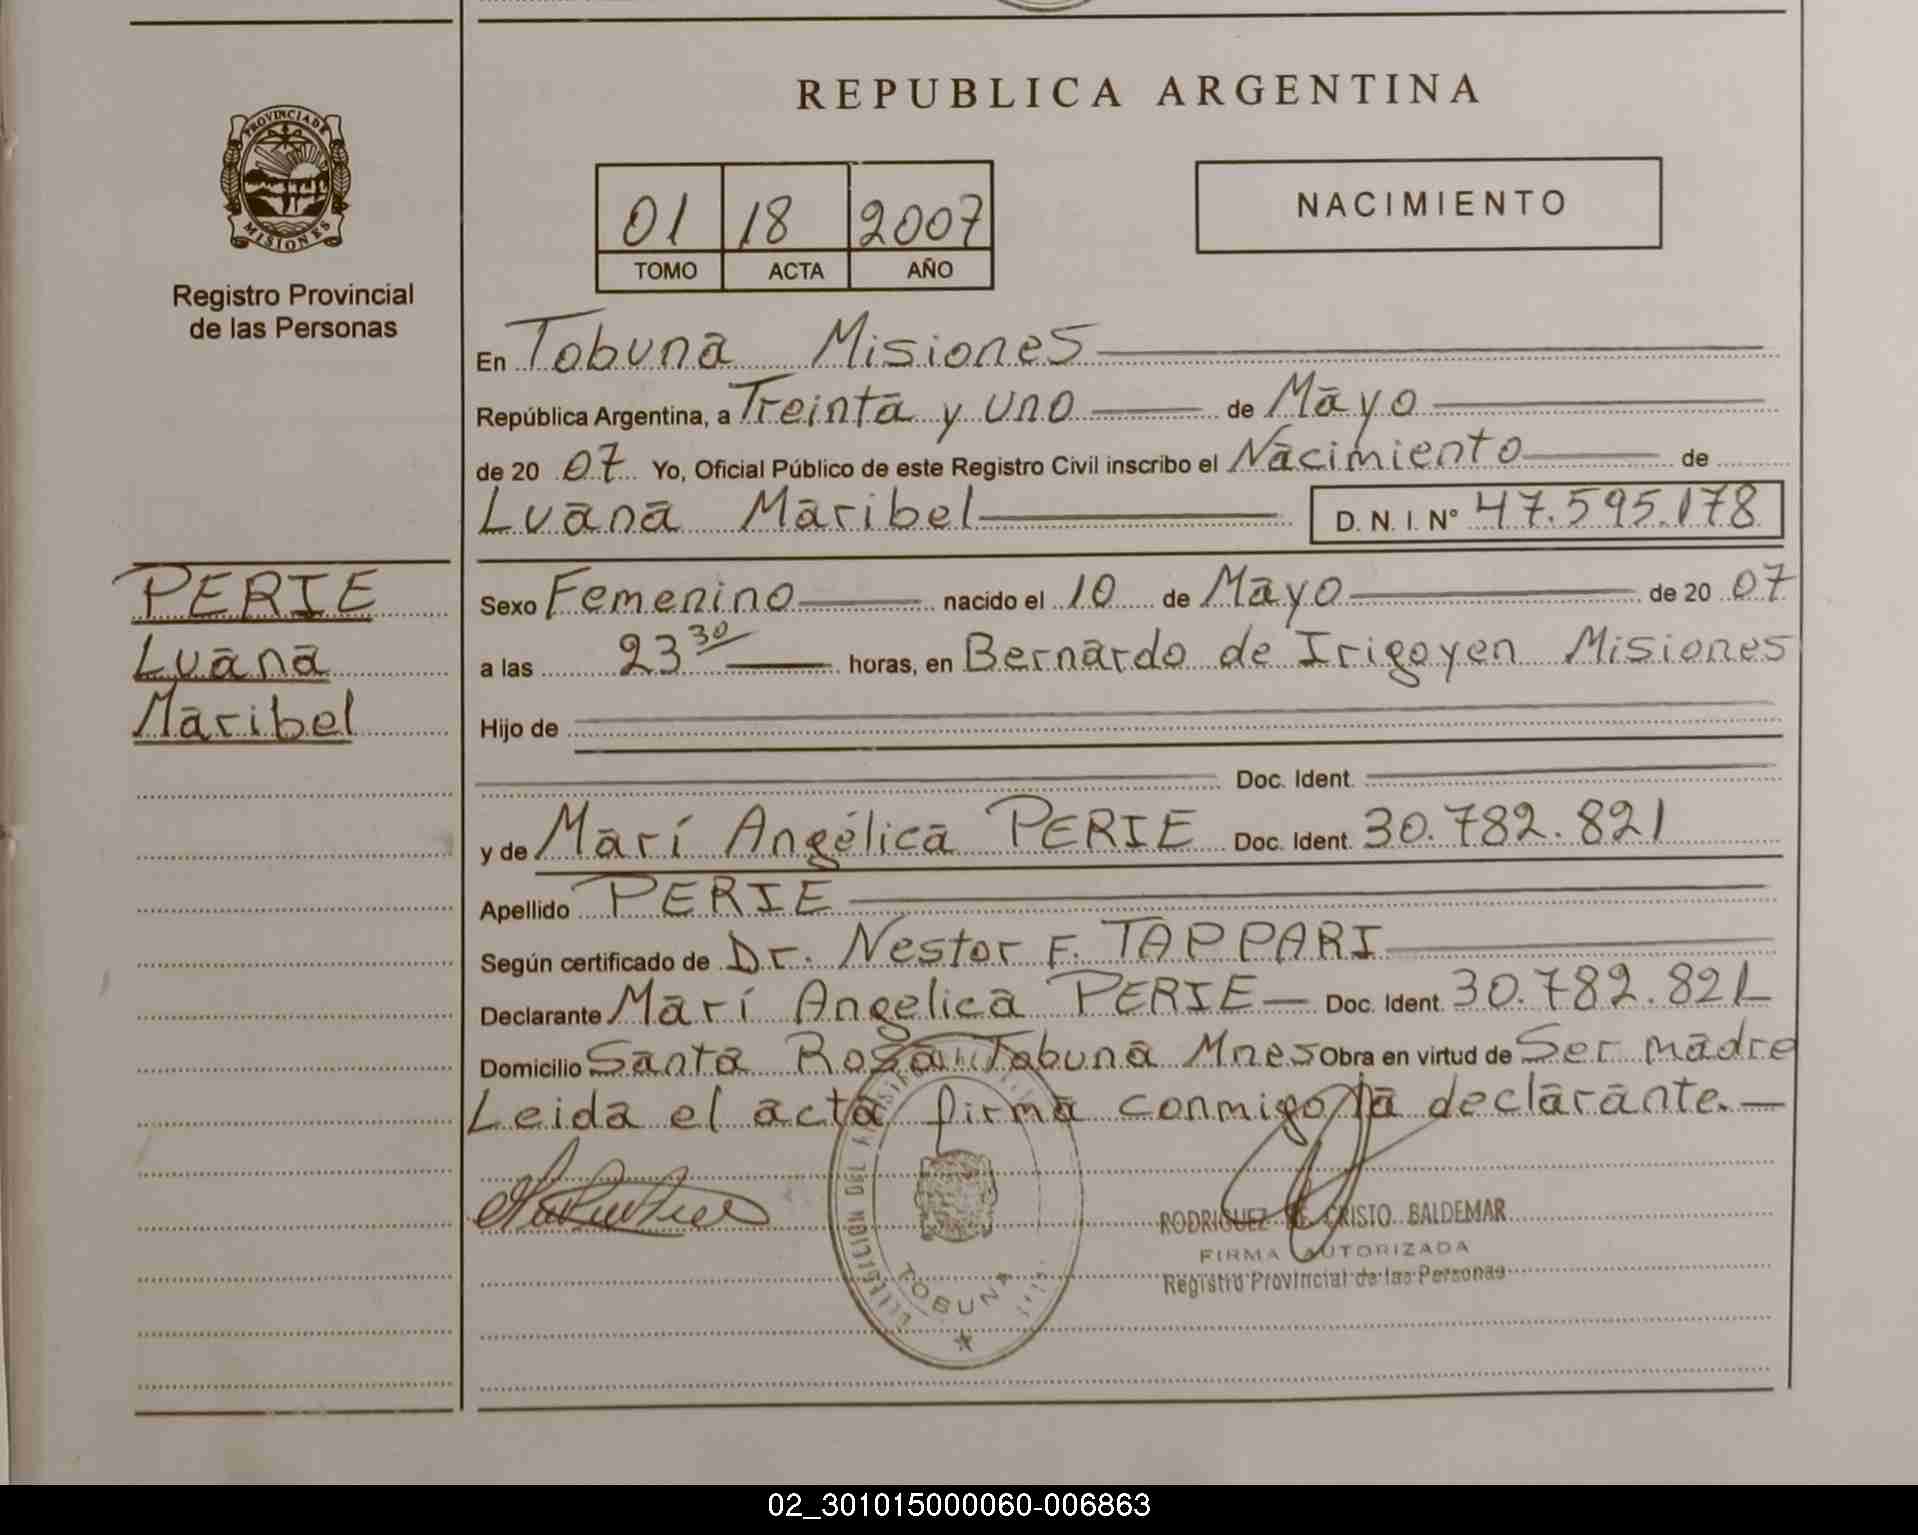 REPUBLICA ARGENTINA
PROVINCIA DE MISIONES
Registro Provincial
de las Personas
01 18 2007
TOMO ACTA AÑO
NACIMIENTO
En Tobuna Misiones
República Argentina, a Treinta y uno de Mayo
de 20 07 Yo, Oficial Público de este Registro Civil inscribo el Nacimiento de
Luana Maribel D. N. I. N° 47.595.178
PERIE
Luana
Maribel
Sexo Femenino nacido el 10 de Mayo de 20 07
a las 23 30 horas, en Bernardo de Irigoyen Misiones
Hijo de
Doc. Ident.
y de Marí Angélica PERIE Doc. Ident. 30.782.821
Apellido PERIE
Según certificado de Dr. Nestor F. TAPPARI
Declarante Marí Angelica PERIE Doc. Ident. 30.782.821
Domicilio Santa Rosa Tobuna Mnes Obra en virtud de Ser madre
Leida el acta firma conmigo la declarante.
TOBUNA
RODRIGUEZ DE CRISTO BALDEMAR
FIRMA AUTORIZADA
Registro Provincial de las Personas
02_301015000060-006863